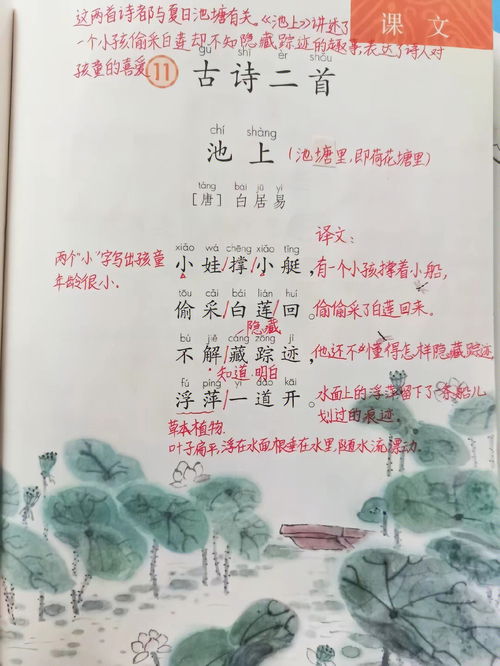 课文
这两首诗都与夏日池塘有关。《池上》讲述了
一个小孩偷采白莲却不知隐藏踪迹的趣事,表达了诗人对
孩童的喜爱。
gǔ shī èr shǒu
11 古诗二首
chí shàng
池上 (池塘里,即荷花塘里)
táng bái jū yì
[唐] 白居易
译文:
xiǎo wá chēng xiǎo tǐng
两个“小”字写出孩童 小娃/撑/小艇, 有一个小孩撑着小船,
年龄很小。
tōu cǎi bái lián huí
偷采/白莲/回。 偷偷采了白莲回来。
隐藏
bù jiě cáng zōng jì
不解/藏踪迹, 他还不懂得怎样隐藏踪迹
知道.明白
fú píng yí dào kāi
浮萍/一道开。 水面上的浮萍留下了 船儿
划过的痕迹.
草本植物.
叶子扁平,浮在水面根垂在水里,随水流漂动.